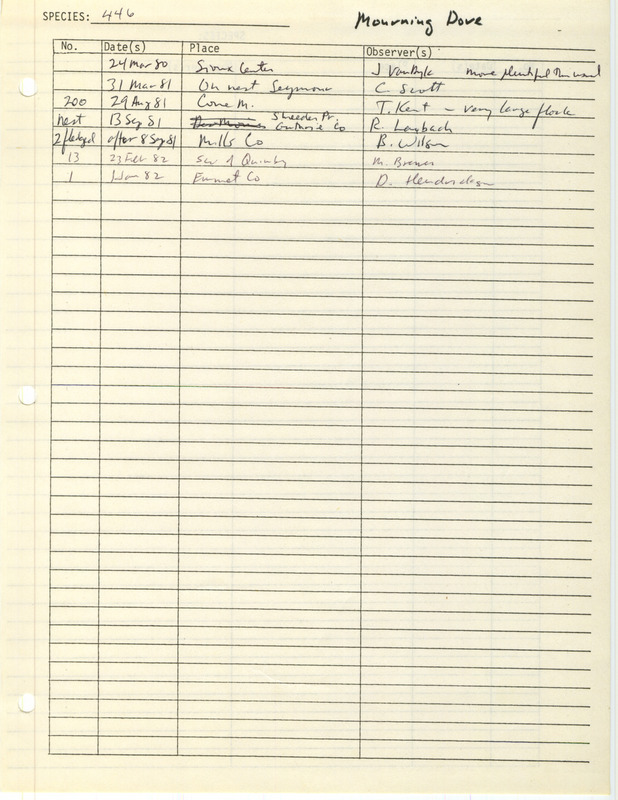 SPECIES: 446 Mourning Dove
No. Date(s) Place Observer(s)
24 Mar 80 Sioux Center J VanDyk more plentiful than usual
31 Mar 81 On nest Seymour C. Scott
200 29 Aug 81 Cone M. T. Kent - very large flock
nest 13 Sep 81 Sheeder Pr. Guthrie Co R. Laubach
2 fledged after 8 Sep 81 Mills Co B. Wilson
13 23 Feb 82 of Quimby M. Brewer
1 82 Emmet Co D.